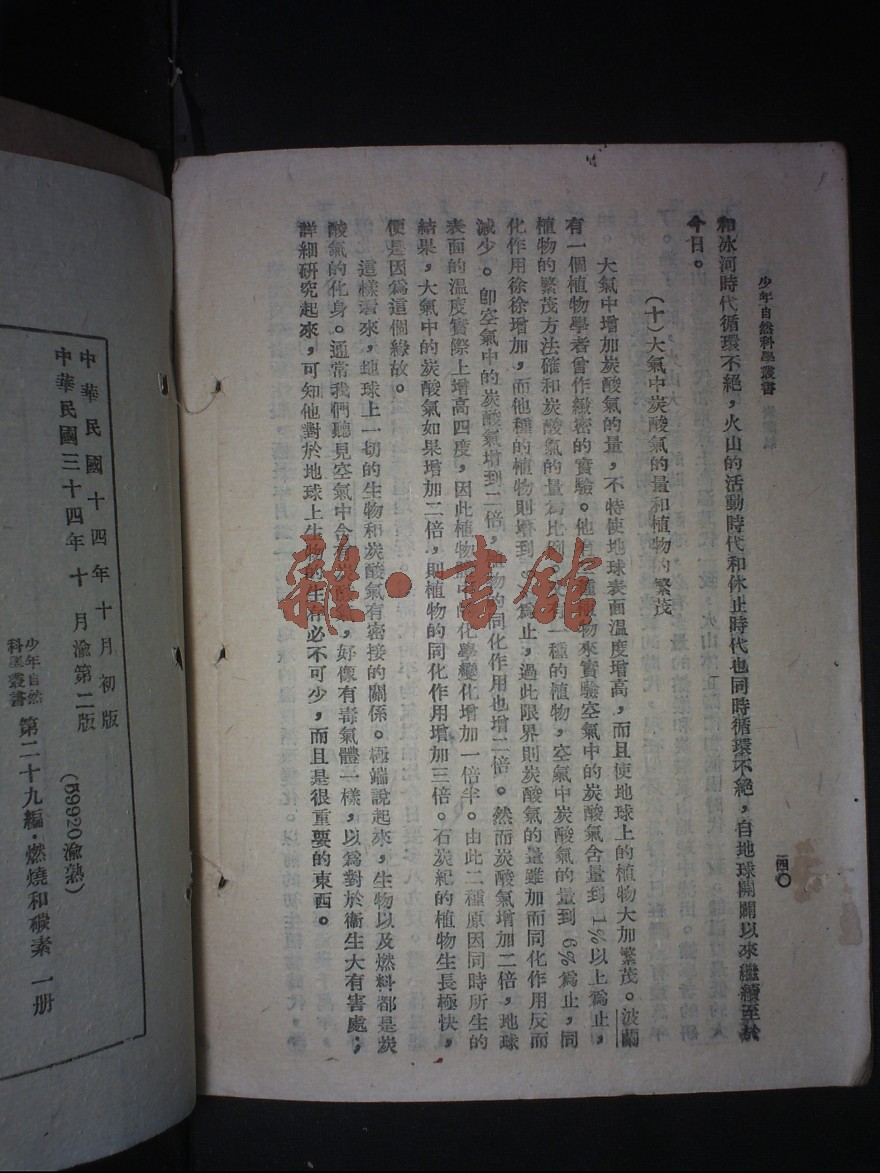 少年自然科學叢書
一四〇
和冰河時代循環不絕，火山的活動時代和休止時代也同時循環不絕，自地球開闢以來繼續至於
今日。
(十)大氣中炭酸氣的量和植物的繁茂
大氣中增加炭酸氣的量，不特使地球表面溫度增高，而且使地球上的植物大加繁茂。波蘭
有一個植物學者曾作緻密的實驗。他 物來實驗空氣中的炭酸氣含量到1%以上爲止，
植物的繁茂方法確和炭酸氣的量爲比例 一種的植物，空氣中炭酸氣的量到6%爲止，同
化作用徐徐增加，而他種的植物則增到 爲止，過此限界則炭酸氣的量雖加而同化作用反而
減少。卽空氣中的炭酸氣增到二倍， 物的同化作用也增二倍。然而炭酸氣增加二倍，地球
表面的溫度實際上增高四度，因此植物 中的化學變化增加一倍半。由此二種原因同時所生的
結果，大氣中的炭酸氣如果增加二倍，則植物的同化作用增加三倍。石炭紀的植物生長極快，
便是因爲這個緣故。
這樣看來，地球上一切的生物和炭酸氣有密接的關係。極端說起來，生物以及燃料都是炭
酸氣的化身。通常我們聽見空氣中含有炭酸 ，好像有毒氣體一樣，以爲對於衞生大有害處；
詳細研究起來，可知他對於地球上生物的生育必不可少，而且是很重要的東西。
雜·書館
中華民國十四年十月初版
中華民國三十四年十月渝第二版
(59920渝熟)
少年自然科學叢書 第二十九編·燃燒和碳素 一册